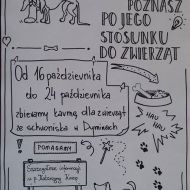 POZNASZ
PO JEGO
STOSUNKU
DO ZWIERZĄT
Od 16 października
do 24 października
zbieramy karmę dla zwierząt
ze schroniska w Dyminach
HAU
HAU
POMAGAMY
Szczegółowe informacje
u p. Katarzyny